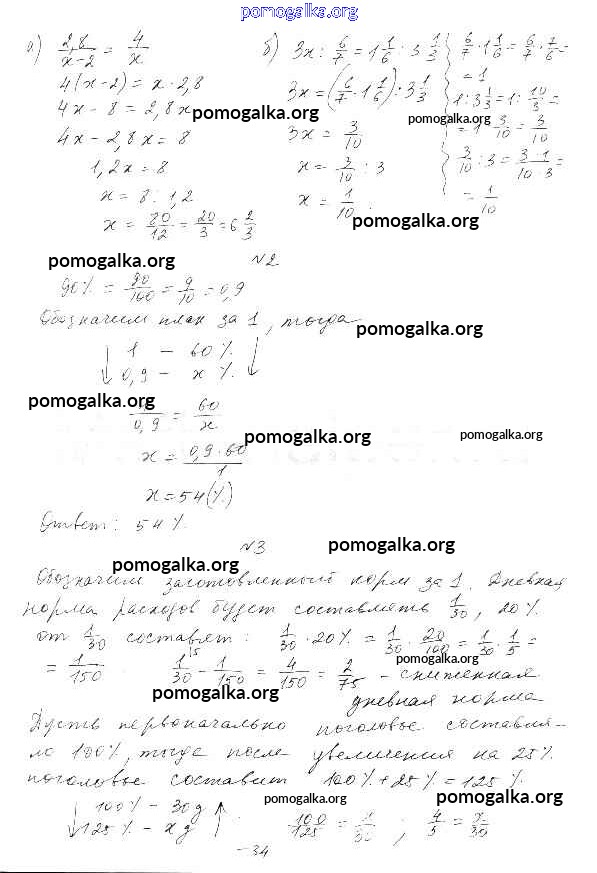 pomogalka.org
а) 2,8/(x-2) = 4/x
4(x-2) = x · 2,8
4x - 8 = 2,8x
4x - 2,8x = 8
1,2x = 8
x = 8 : 1,2
x = 80/12 = 20/3 = 6 2/3
б) 3x : 6/7 = 1 1/6 : 3 1/3
3x = (6/7 · 1 1/6) : 3 1/3
3x = 3/10
x = 3/10 : 3
x = 1/10
6/7 · 1 1/6 = 6/7 · 7/6 =
= 1
1 : 3 1/3 = 1 : 10/3 =
= 1 · 3/10 = 3/10
3/10 : 3 = (3 · 1)/(10 · 3) =
= 1/10
pomogalka.org
pomogalka.org
pomogalka.org
pomogalka.org
№2
90% = 90/100 = 9/10 = 0,9
Обозначим план за 1, тогда
pomogalka.org
↓ 1 – 60% ↓
0,9 – x%
pomogalka.org
/0,9 = 60/x
pomogalka.org
pomogalka.org
x = (0,9 · 60)/1
x = 54 (%)
Ответ: 54%
№3
pomogalka.org
pomogalka.org
Обозначим заготовленный корм за 1. Дневная
норма расходов будет составлять 1/30, 20%
от 1/30 составят: 1/30 · 20% = 1/30 · 20/100 = 1/30 · 1/5 =
pomogalka.org
= 1/150 1/30 - 1/150 = 4/150 = 2/75 - сниженная
pomogalka.org
дневная норма
Пусть первоначально поголовье составля-
ло 100%, тогда после увеличения на 25%
поголовье составит 100% + 25% = 125%
pomogalka.org
pomogalka.org
↓ 100% – 30 д ↑
125% – x д
100/125 = x/30 ; 4/5 = x/30
-34